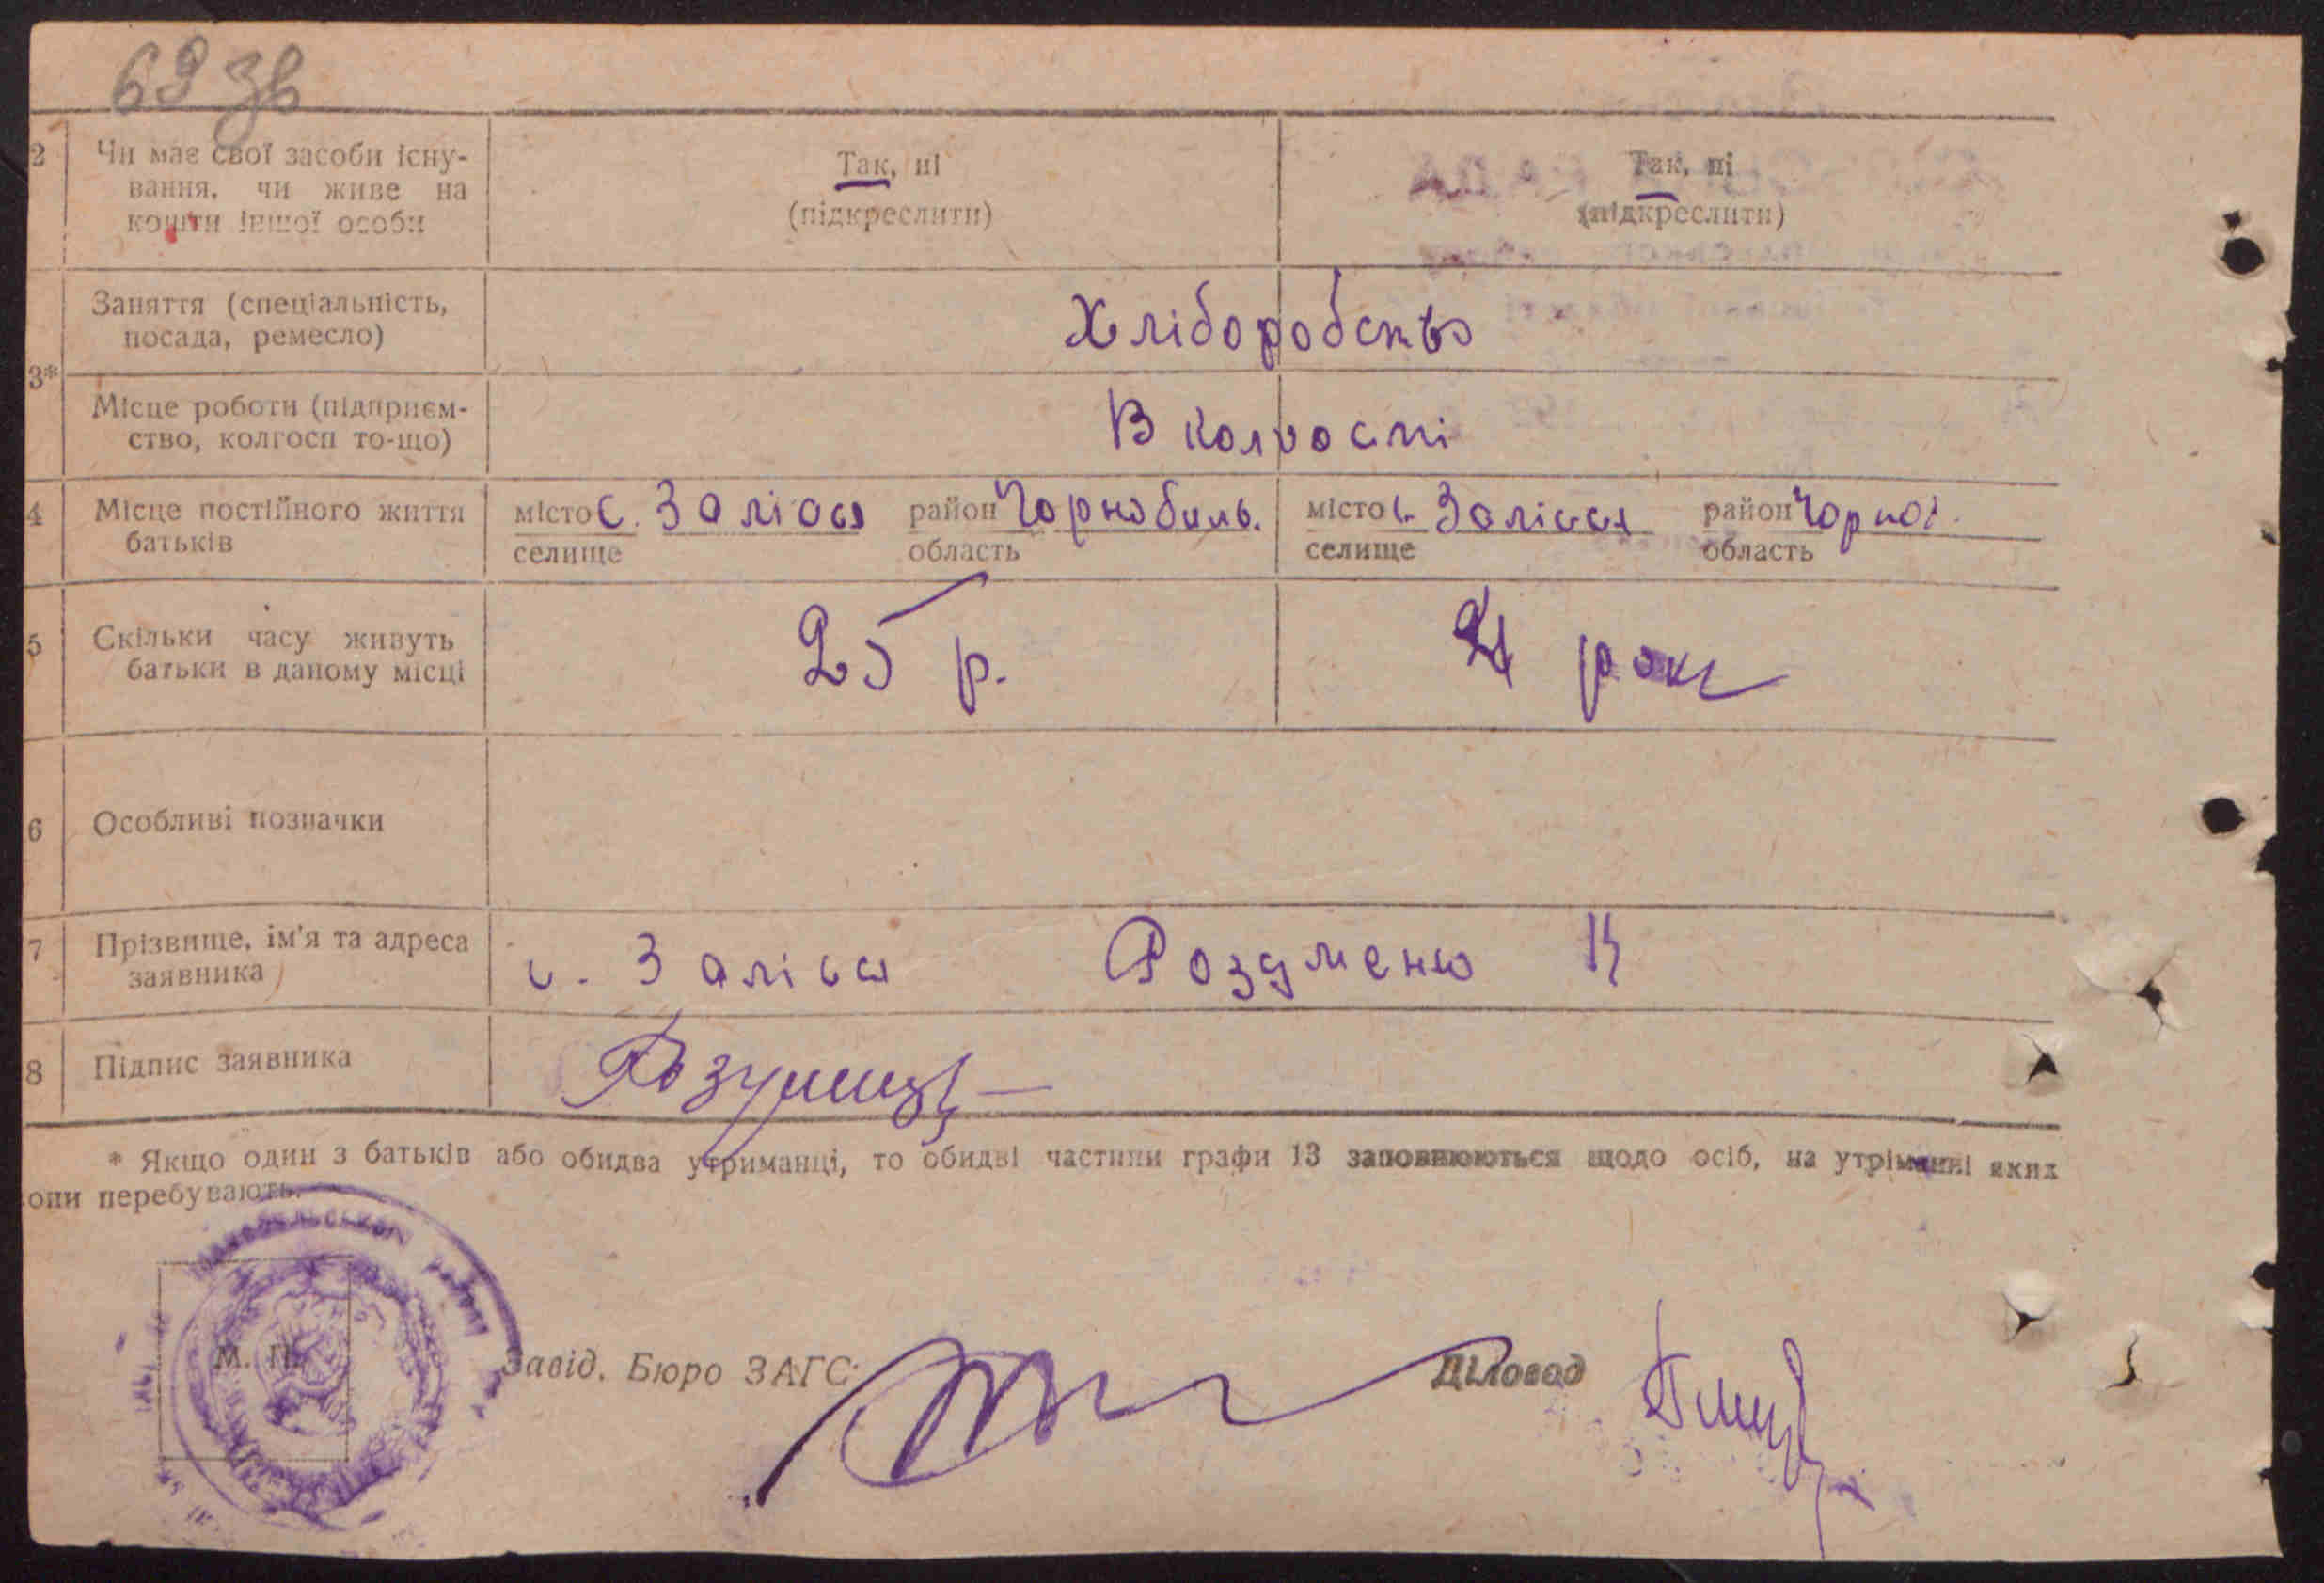 69 зв
2 Чи має свої засоби існу-
вання, чи живе на
кошти іншої особи
Так, ні
(підкреслити)
Так, ні
(підкреслити)
3*
Заняття (спеціальність,
посада, ремесло)
Хліборобство
Місце роботи (підприєм-
ство, колгосп то-що)
В колгоспі
4 Місце постійного життя
батьків
місто с. Залісся район Чорнобиль.
селище область
місто с. Залісся район Чорноб.
селище область
5 Скільки часу живуть
батьки в даному місці
25 р.
роки
6 Особливі позначки
7 Прізвище, ім'я та адреса
заявника
с. Залісся Розуменко
8 Підпис заявника
* Якщо один з батьків або обидва утриманці, то обидві частини графи 13 заповнюються щодо осіб, на утріманні яких
вони перебувають.
М. П.
Завід. Бюро ЗАГС
Діловод